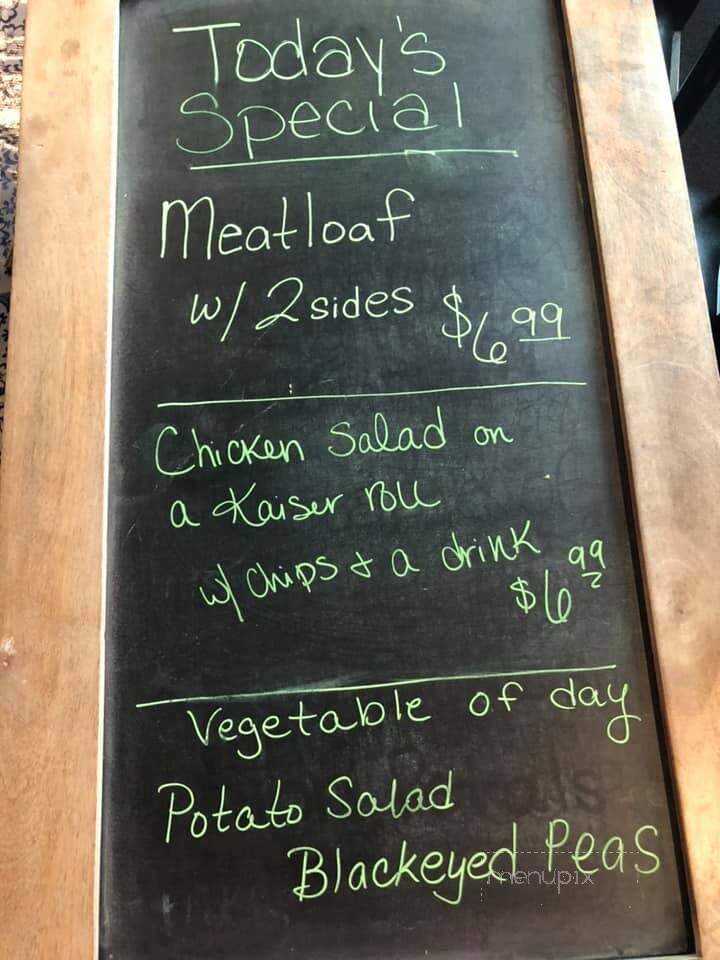 Today's
Special
Meatloaf
w/ 2 sides $6.99
Chicken Salad on
a Kaiser roll
w/ chips & a drink
$6.99
Vegetable of day
Potato Salad
Blackeyed Peas
menupix